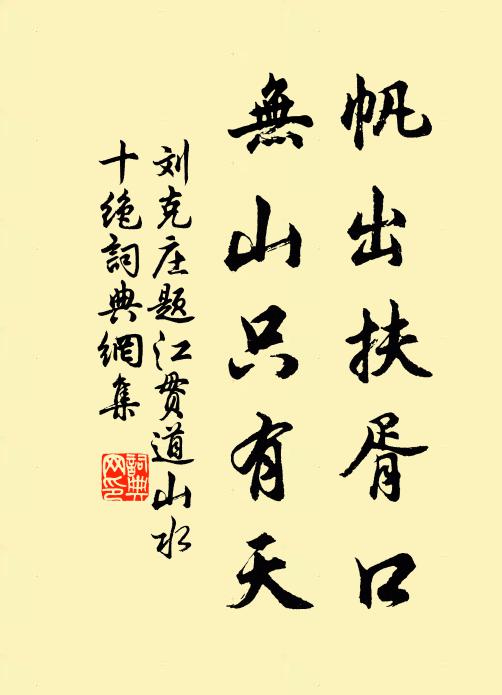 帆出扶胥口
無山只有天
刘克庄题江贯道山水
十绝詞典網集
詞典网印